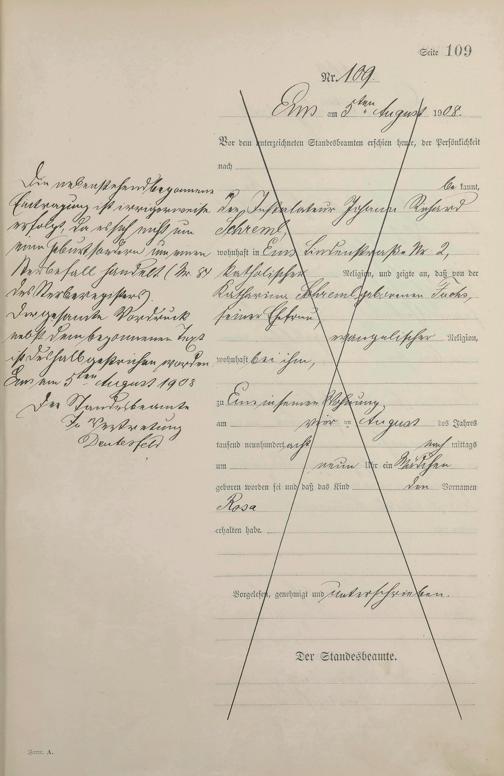 Seite 109
Nr. 109.
Ems am 5ten August 1908.
Vor dem unterzeichneten Standesbeamten erschien heute, der Persönlichkeit
nach
be kannt,
der Installateur Johann
Schreml,
wohnhaft in Ems Lindenstraße Nr 2,
katholischer Religion, und zeigte an, daß von der
Katharina Schreml, geborenen Fuchs,
seiner Ehefrau,
evangelischer Religion,
wohnhaft bei ihm,
zu Ems in seiner Wohnung,
am vier ten August des Jahres
tausend neunhundert acht nach mittags
um neun Uhr ein Mädchen
geboren worden sei und daß das Kind den Vornamen
Rosa
erhalten habe.
Vorgelesen, genehmigt und unterschrieben.
Der Standesbeamte.
Die nebenstehend begonnene
Eintragung ist irrigerweise
erfolgt, da es sich nicht um
eine Geburt sondern um einen
Sterbefall handelt (Nr. 84
des Sterberegisters).
Der gesamte Vordruck
nebst dem begonnenen Text
ist deshalb gestrichen worden
Ems am 5ten August 1908
Der Standesbeamte
In Vertretung
Form. A.